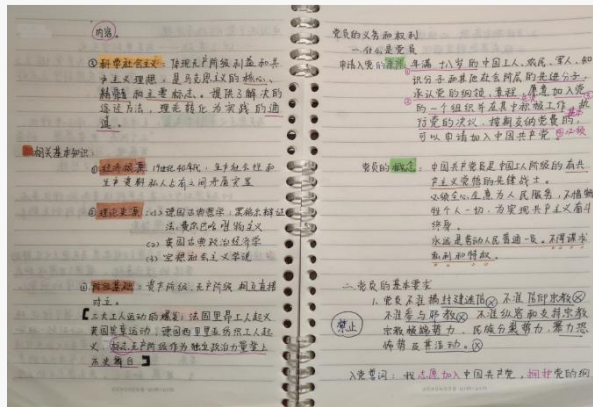 内容。
③科学社会主义:体现无产阶级利益和共
产主义理想,是马克思主义的核心、
精髓和主要标志。提供了解决的
途径方法,理论转化为实践的通
道。
相关基本知识:
①经济根源:19世纪40年代,生产社会性和
生产资料私人占有之间矛盾突显
②理论来源:(1)德国古典哲学:黑格尔辩证
法,费尔巴哈唯物主义
(2)英国古典政治经济学
(3)空想社会主义学说
③阶级基础:资产阶级、无产阶级相互直接
对立。
【三大工人运动的爆发:法国里昂工人起义
英国宪章运动;德国西里西亚纺织工人起
义,标志无产阶级作为独立政治力量登上
历史舞台】
党员的义务和权利
一、什么是党员
申请入党的条件:年满十八岁的中国工人、农民、军人、知
识分子和其他社会阶层的先进分子,
承认党的纲领、章程,愿意加入党
的一个组织并在其中积极工作、执
行党的决议、按期交纳党费的,
可以申请加入中国共产党。
党员的概念:中国共产党员是中国工人阶级的有共
产主义觉悟的先锋战士。
必须全心全意为人民服务,不惜牺
牲个人一切,为实现共产主义奋斗
终身。
永远是劳动人民普通一员。不得谋求
私利和特权。
二、党员的基本要求
1、党员不准搞封建迷信 不准信仰宗教
不准参与邪教 不准纵容和支持宗教
禁止
宗教极端势力、民族分裂势力、暴力恐
怖势力及其活动。
入党誓词:我志愿加入中国共产党,拥护党的纲